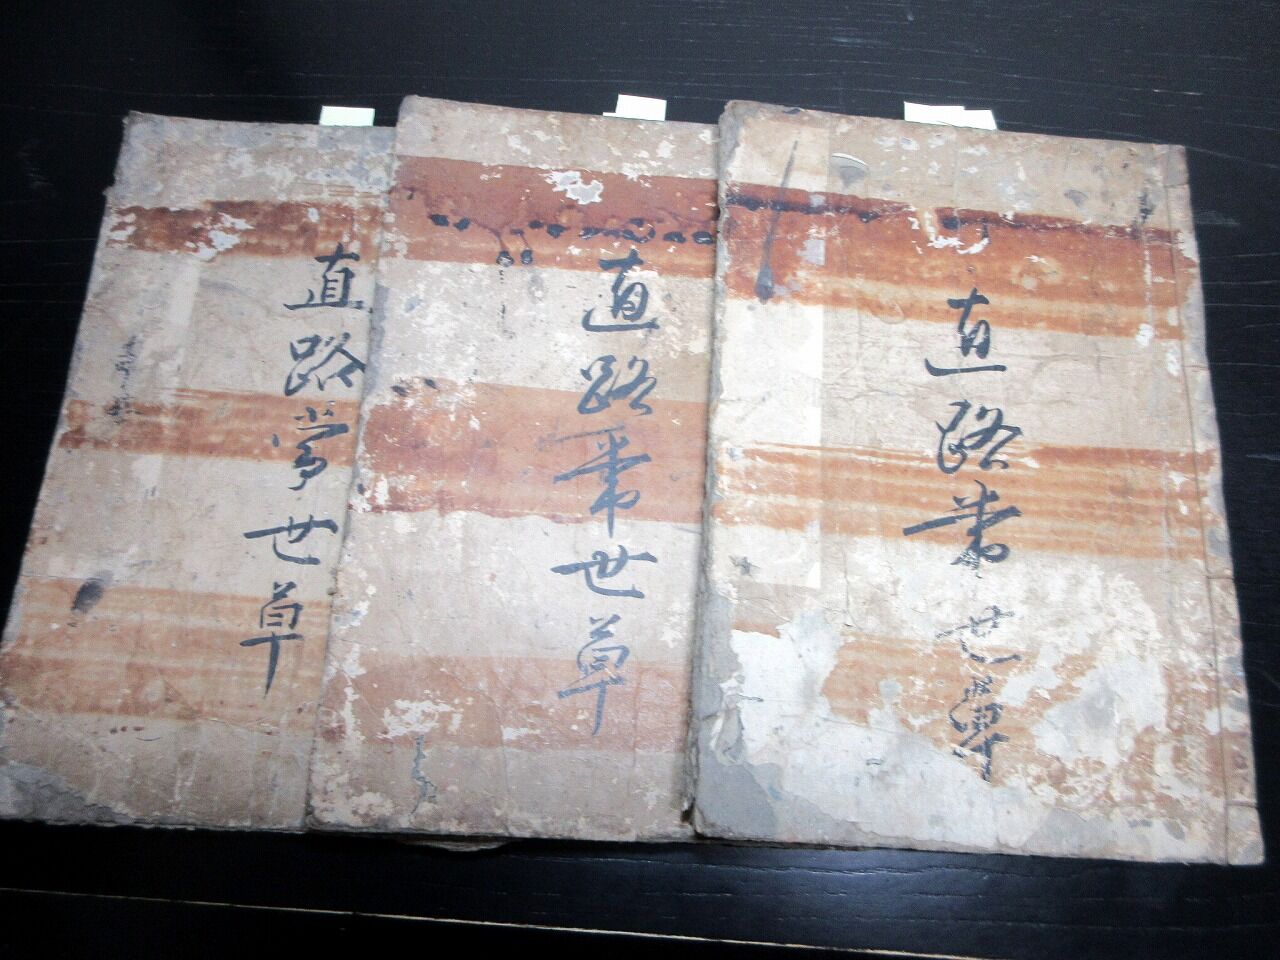 直路常世草
直路常世草
直路常世草